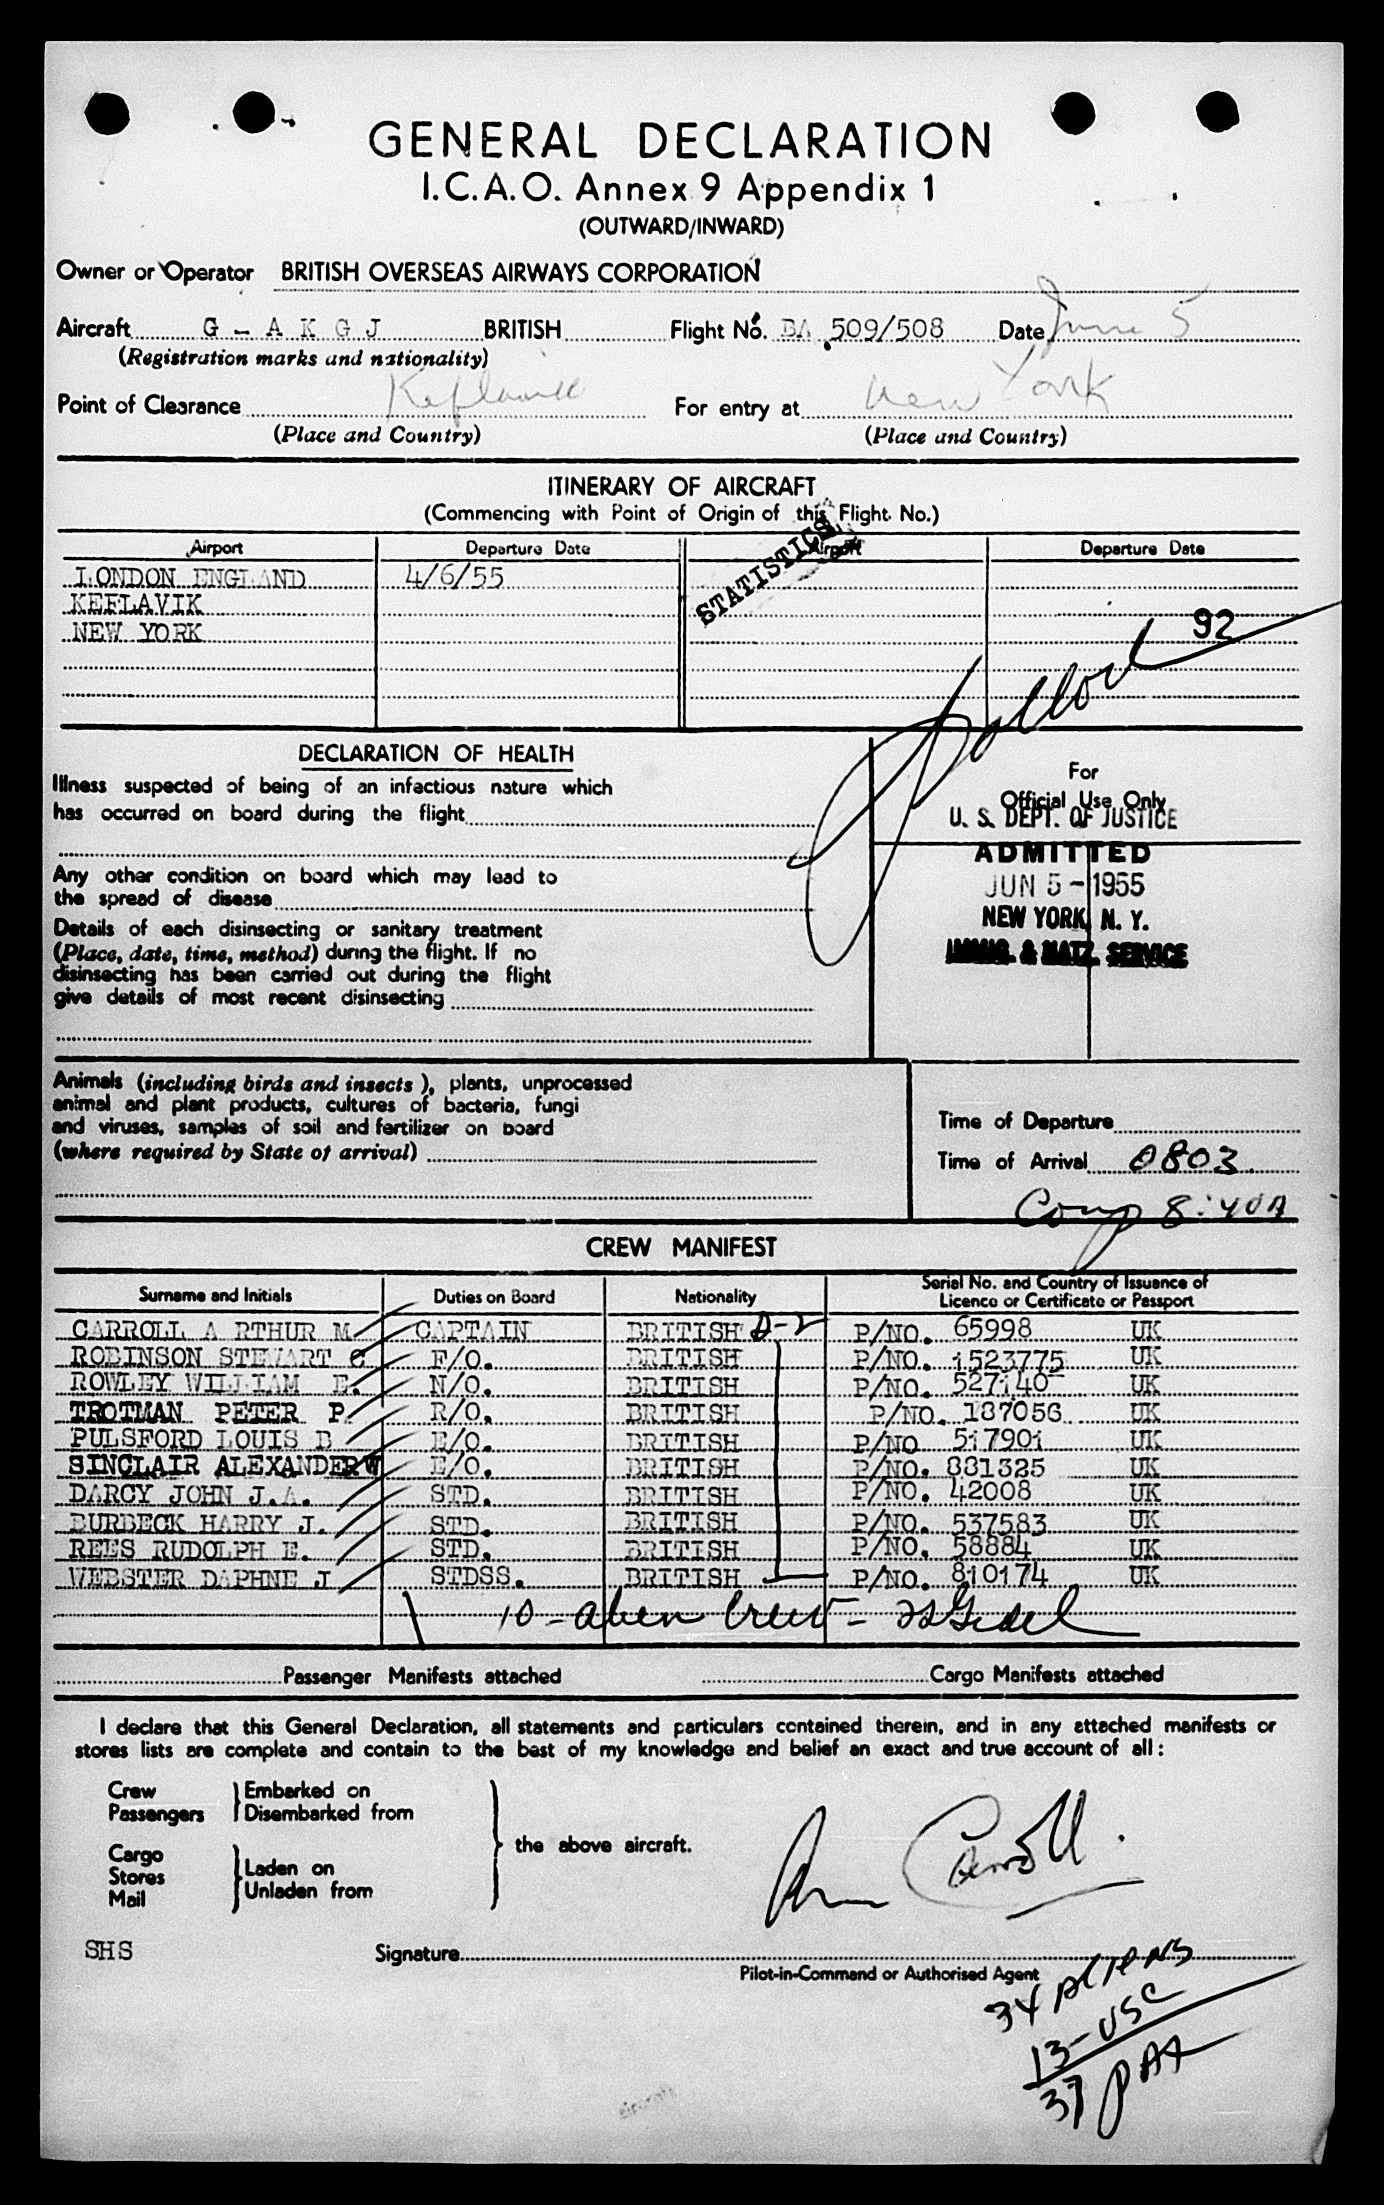 GENERAL DECLARATION
I.C.A.O. Annex 9 Appendix 1
(OUTWARD/INWARD)
Owner or Operator BRITISH OVERSEAS AIRWAYS CORPORATION
Aircraft G - A K G J BRITISH Flight No. BA 509/508 Date June 5
(Registration marks and nationality)
Point of Clearance Keflavik For entry at New York
(Place and Country) (Place and Country)
ITINERARY OF AIRCRAFT
(Commencing with Point of Origin of this Flight No.)
STATISTICS
Airport Departure Date Airport Departure Date
LONDON ENGLAND 4/6/55
KEFLAVIK
NEW YORK
92
DECLARATION OF HEALTH
Illness suspected of being of an infectious nature which
has occurred on board during the flight
Any other condition on board which may lead to
the spread of disease
Details of each disinsecting or sanitary treatment
(Place, date, time, method) during the flight. If no
disinsecting has been carried out during the flight
give details of most recent disinsecting
For
Official Use Only
U. S. DEPT. OF JUSTICE
ADMITTED
JUN 5 - 1955
NEW YORK, N. Y.
IMMIG. & NATZ. SERVICE
Animals (including birds and insects), plants, unprocessed
animal and plant products, cultures of bacteria, fungi
and viruses, samples of soil and fertilizer on board
(where required by State of arrival)
Time of Departure
Time of Arrival 0803
Comp 8:40A
CREW MANIFEST
Surname and Initials Duties on Board Nationality Serial No. and Country of Issuance of Licence or Certificate or Passport
CARROLL A RTHUR M CAPTAIN BRITISH D-2 P/NO. 65998 UK
ROBINSON STEWART C F/O. BRITISH P/NO. 1523775 UK
ROWLEY WILLIAM E. N/O. BRITISH P/NO. 527140 UK
TROTMAN PETER P. R/O. BRITISH P/NO. 187056 UK
PULSFORD LOUIS B E/O. BRITISH P/NO 517901 UK
SINCLAIR ALEXANDER W E/O. BRITISH P/NO. 881325 UK
DARCY JOHN J.A. STD. BRITISH P/NO. 42008 UK
BURBECK HARRY J. STD. BRITISH P/NO. 537583 UK
REES RUDOLPH E. STD. BRITISH P/NO. 58884 UK
WEBSTER DAPHNE J STDSS. BRITISH P/NO. 810174 UK
10 - alien Crew -
Passenger Manifests attached Cargo Manifests attached
I declare that this General Declaration, all statements and particulars contained therein, and in any attached manifests or
stores lists are complete and contain to the best of my knowledge and belief an exact and true account of all:
Crew Embarked on
Passengers Disembarked from
the above aircraft.
Cargo
Stores Laden on
Mail Unladen from
Carroll
SHS Signature
Pilot-in-Command or Authorised Agent
34 Aliens
13-USC
37 PAX